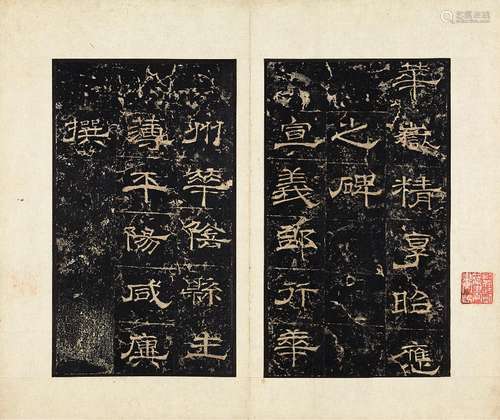 華嶽精享昭應
之碑
宣義郎行華
州華陰縣主
薄平陽咸廙
撰